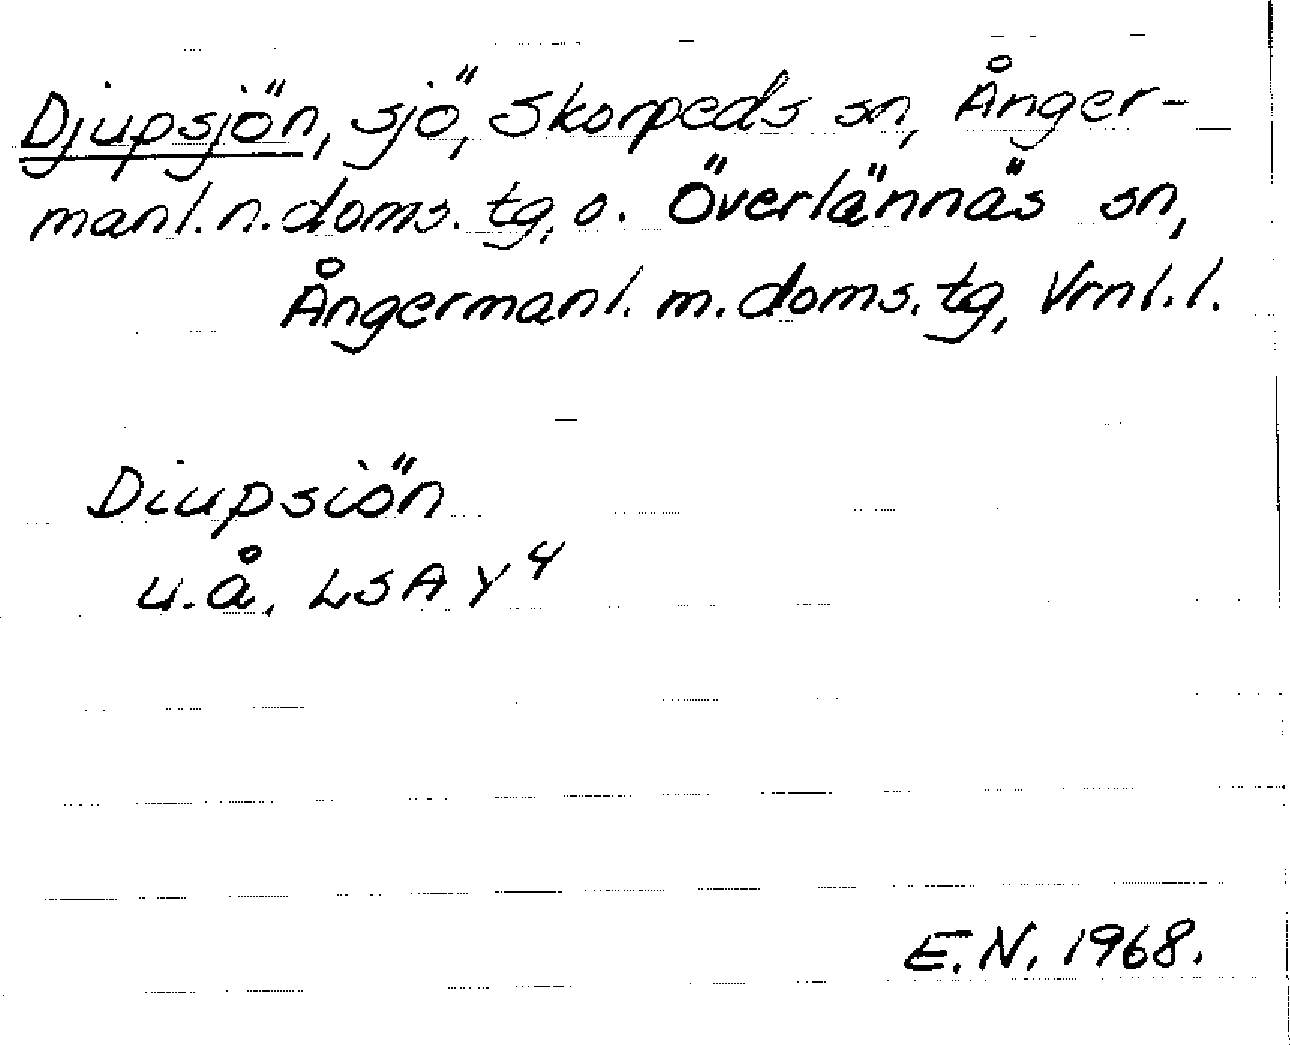 Djupsjön, sjö, Skorpeds sn, Ånger-
manl. n. doms. tg, o. Överlännäs sn,
Ångermanl. m. doms. tg, Vrnl. l.
Diupsiön
u. å. LSA Y 4
E. N. 1968.